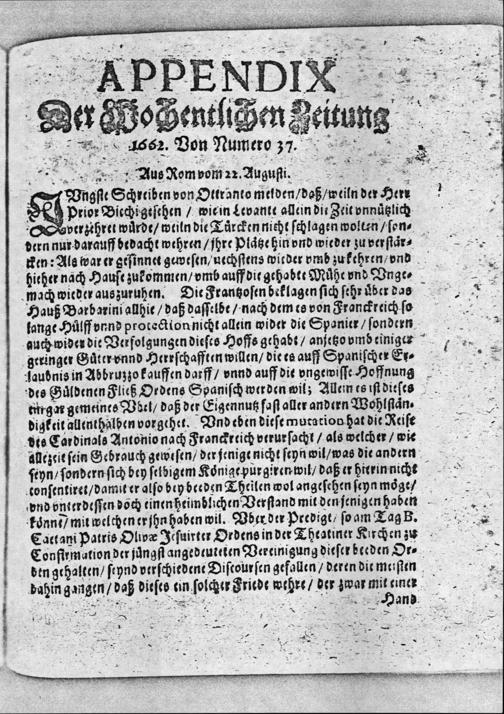 APPENDIX
Der Wochentlichen Zeitung
1662. Von Numero 37.
Aus Rom vom 22. Augusti.
JVngste Schreiben von Ottranto melden/ daß/ weiln der Herr
Prior Bichi gesehen / wie in Levante allein die Zeit vnnützlich
verzehret würde/ weiln die Türcken nicht schlagen wolten / son-
dern nur darauff bedacht wehren / jhre Plätze hin vnd wieder zu verstär-
cken: Als war er gesinnet gewesen/ nechstens wieder vmb zu kehren/ vnd
hieher nach Hause zukommen/ vmb auff die gehabte Mühe vnd Vnge-
mach wieder auszuruhen. Die Frantzosen beklagen sich sehr über das
Hauß Barbarini allhie/ daß dasselbe / nach dem es von Franckreich so
lange Hülff vnnd protection nicht allein wider die Spanier / sondern
auch wider die Verfolgungen dieses Hoffs gehabt / anjetzo vmb einiger
geringer Güter vnnd Herrschafften willen/ die es auff Spanischer Er-
laubnis in Abbruzzo kauffen darff/ vnnd auff die vngewisse Hoffnung
des Güldenen Fließ Ordens Spanisch werden wil; Allein es ist dieses
ein gar gemeines Vbel/ daß der Eigennutz fast aller andern Wohlstän-
digkeit allenthalben vorgehet. Vnd eben diese mutation hat die Reise
des Cardinals Antonio nach Franckreich verursacht / als welcher / wie
allezeit sein Gebrauch gewesen / der jenige nicht seyn wil/ was die andern
seyn / sondern sich bey selbigem Könige purgiren wil/ daß er hierin nicht
consentiret/ damit er also bey beeden Theilen wol angesehen seyn möge/
vnd vnterdessen doch einen heimblichen Verstand mit den jenigen haben
könne/ mit welchen er jhn haben wil. Vber der Predigt / so am Tag B.
Caetani Patris Olivæ Jesuiter Ordens in der Theatiner Kirchen zu
Confirmation der jüngst angedeuteten Vereinigung dieser beeden Or-
den gehalten/ seynd verschiedene Discoursen gefallen / deren die meisten
dahin gangen/ daß dieses ein solcher Friede wehre / der zwar mit einer
Hand